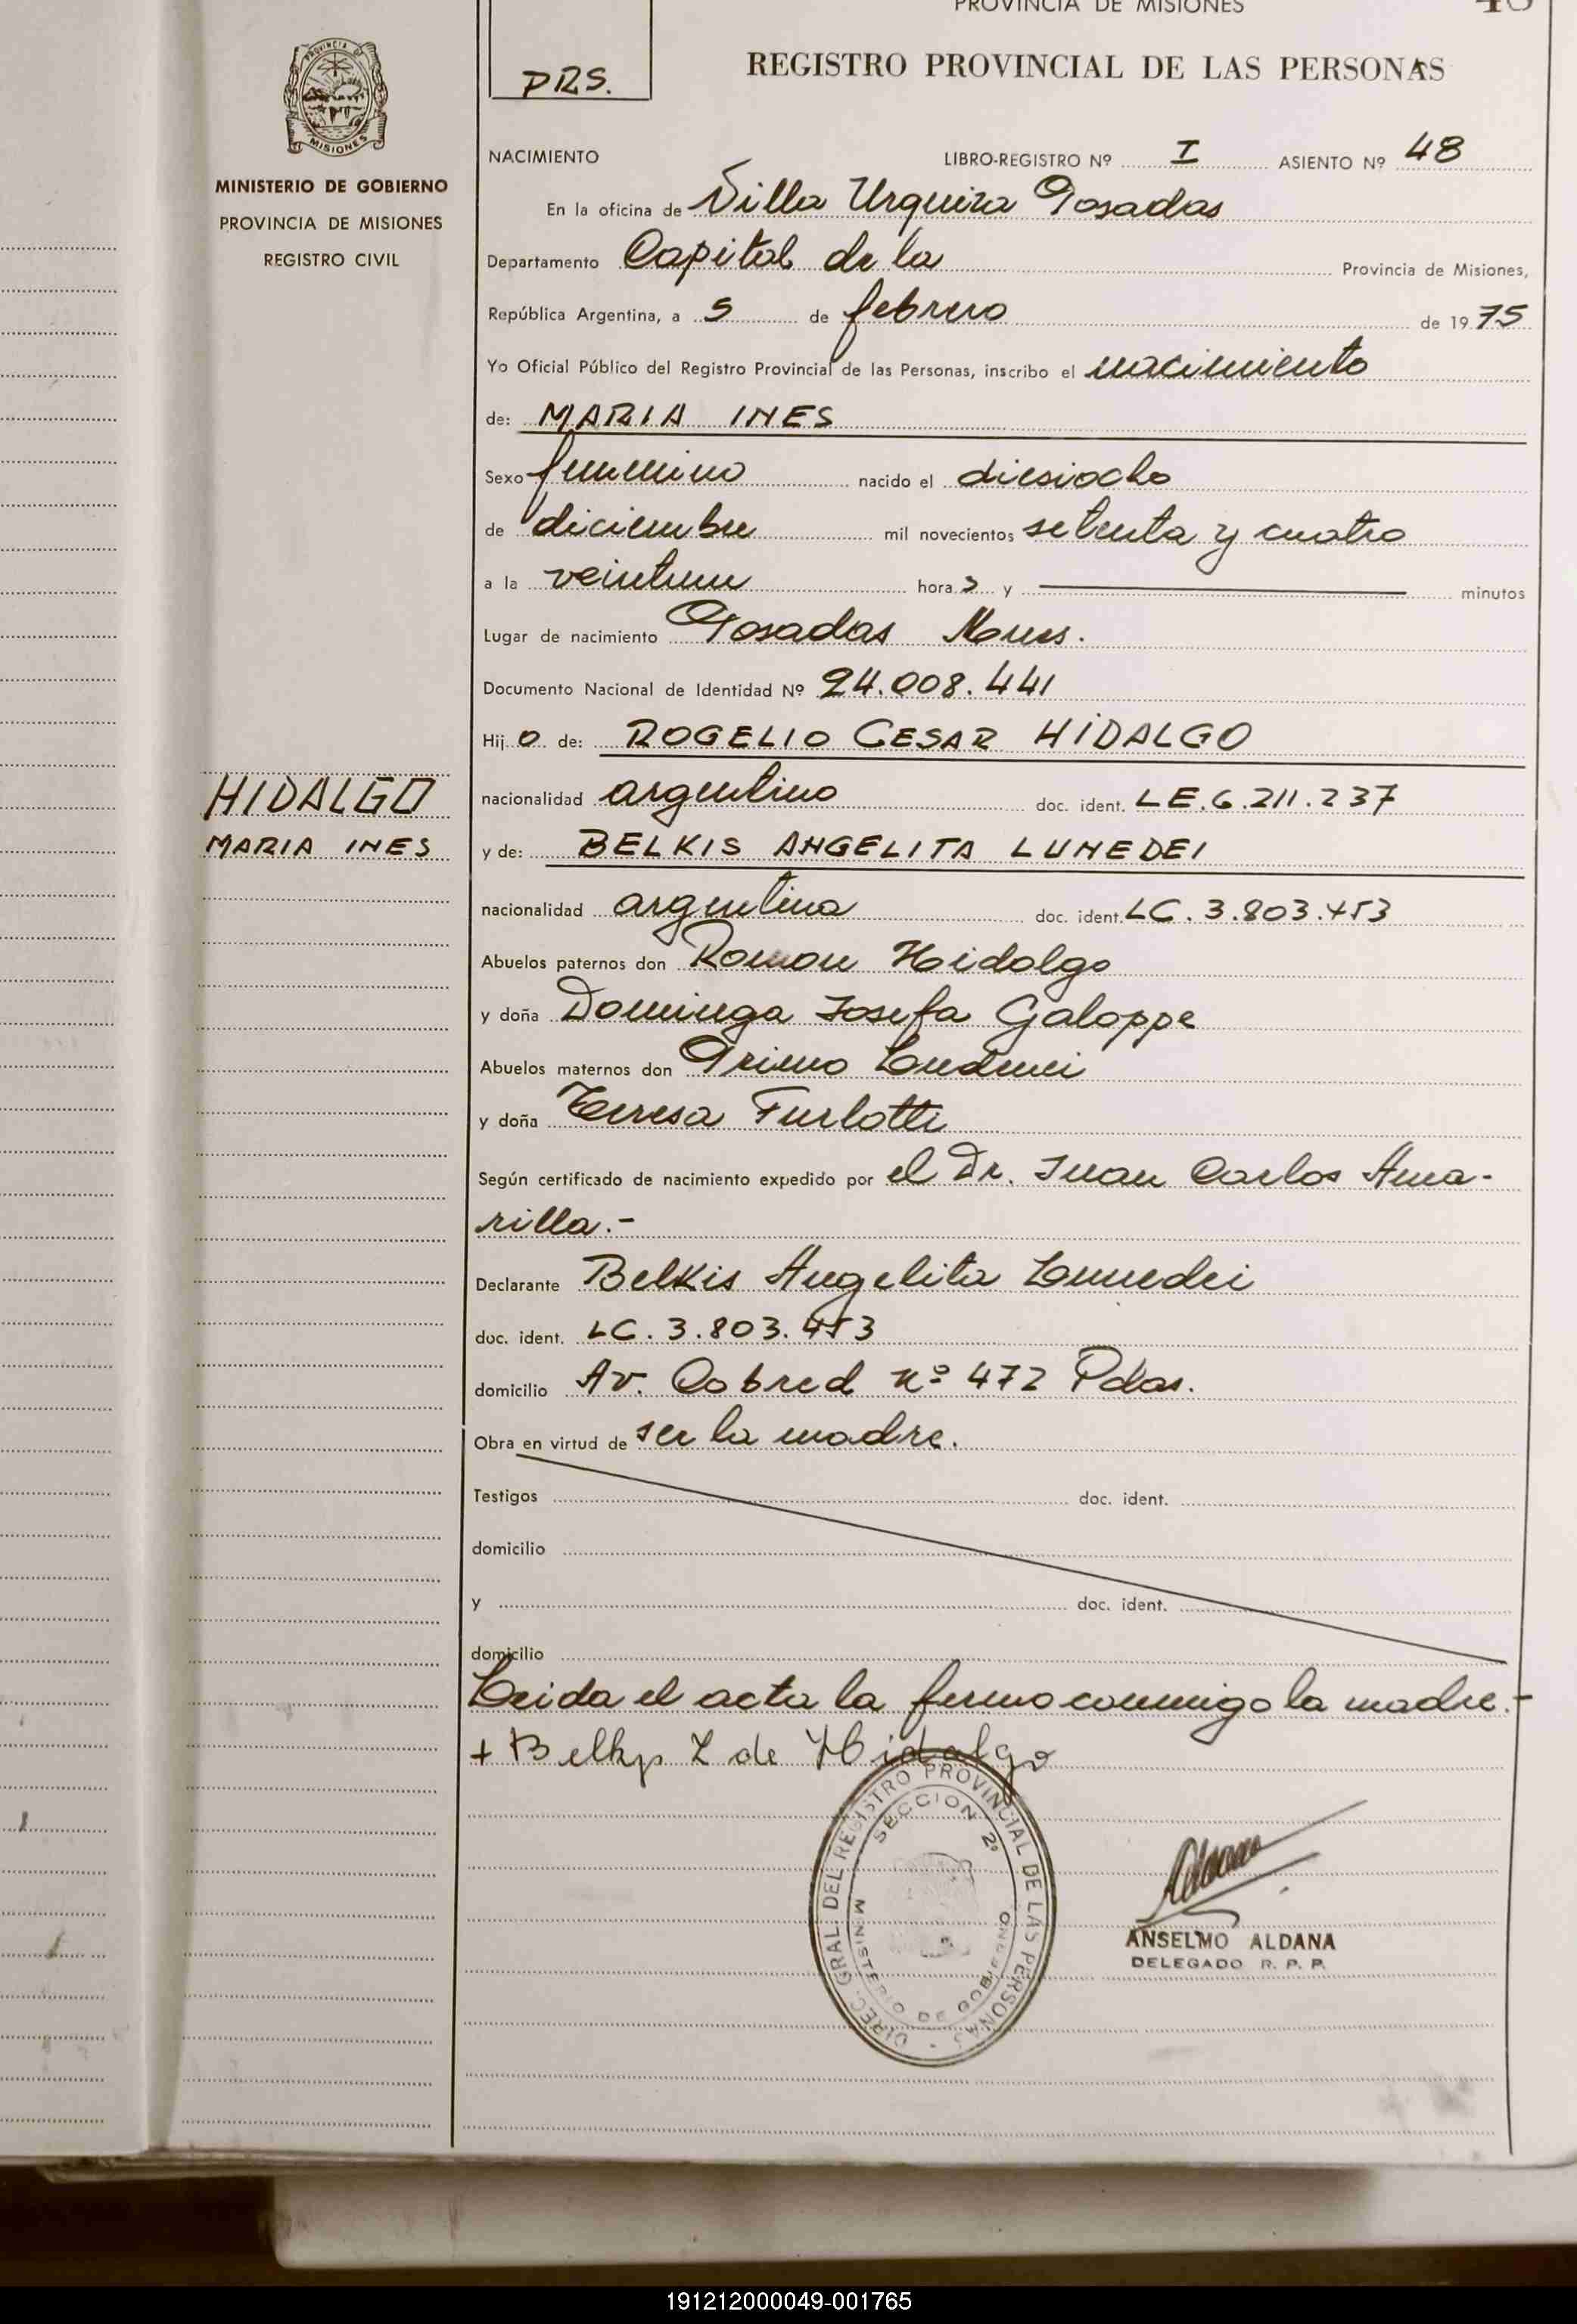 PROVINCIA DE MISIONES
PRS.
REGISTRO PROVINCIAL DE LAS PERSONAS
PROVINCIA DE
MISIONES
MINISTERIO DE GOBIERNO
PROVINCIA DE MISIONES
REGISTRO CIVIL
NACIMIENTO LIBRO-REGISTRO Nº I ASIENTO Nº 48
En la oficina de Villa Urquiza Posadas
Departamento Capital de la Provincia de Misiones,
República Argentina, a 5 de febrero de 1975
Yo Oficial Público del Registro Provincial de las Personas, inscribo el nacimiento
de: MARIA INES
Sexo femenino nacido el diesiocho
de diciembre mil novecientos setenta y cuatro
a la veintiun horas y minutos
Lugar de nacimiento Posadas Mnes.
Documento Nacional de Identidad Nº 24.008.441
Hijo de: ROGELIO CESAR HIDALGO
HIDALGO
MARIA INES
nacionalidad argentino doc. ident. LE.6.211.237
y de: BELKIS ANGELITA LUNEDEI
nacionalidad argentina doc. ident. LC.3.803.453
Abuelos paternos don Ramon Hidalgo
y doña Dominga Josefa Galoppe
Abuelos maternos don Primo
y doña Teresa Furlotti
Según certificado de nacimiento expedido por el Dr. Juan Carlos Ama-
rilla.-
Declarante Belkis Angelita Lunnedei
doc. ident. LC.3.803.453
domicilio Av. Cabred nº 472 Pdas.
Obra en virtud de ser la madre.
Testigos doc. ident.
domicilio
y doc. ident.
domicilio
Leida el acta la firma conmigo la madre.-
+ Belkys L de Hidalgo
DIREC. GRAL. DEL REGISTRO PROVINCIAL DE LAS PERSONAS
SECCION 2º
MINISTERIO DE GOBIERNO
Aldana
ANSELMO ALDANA
DELEGADO R. P. P.
191212000049-001765